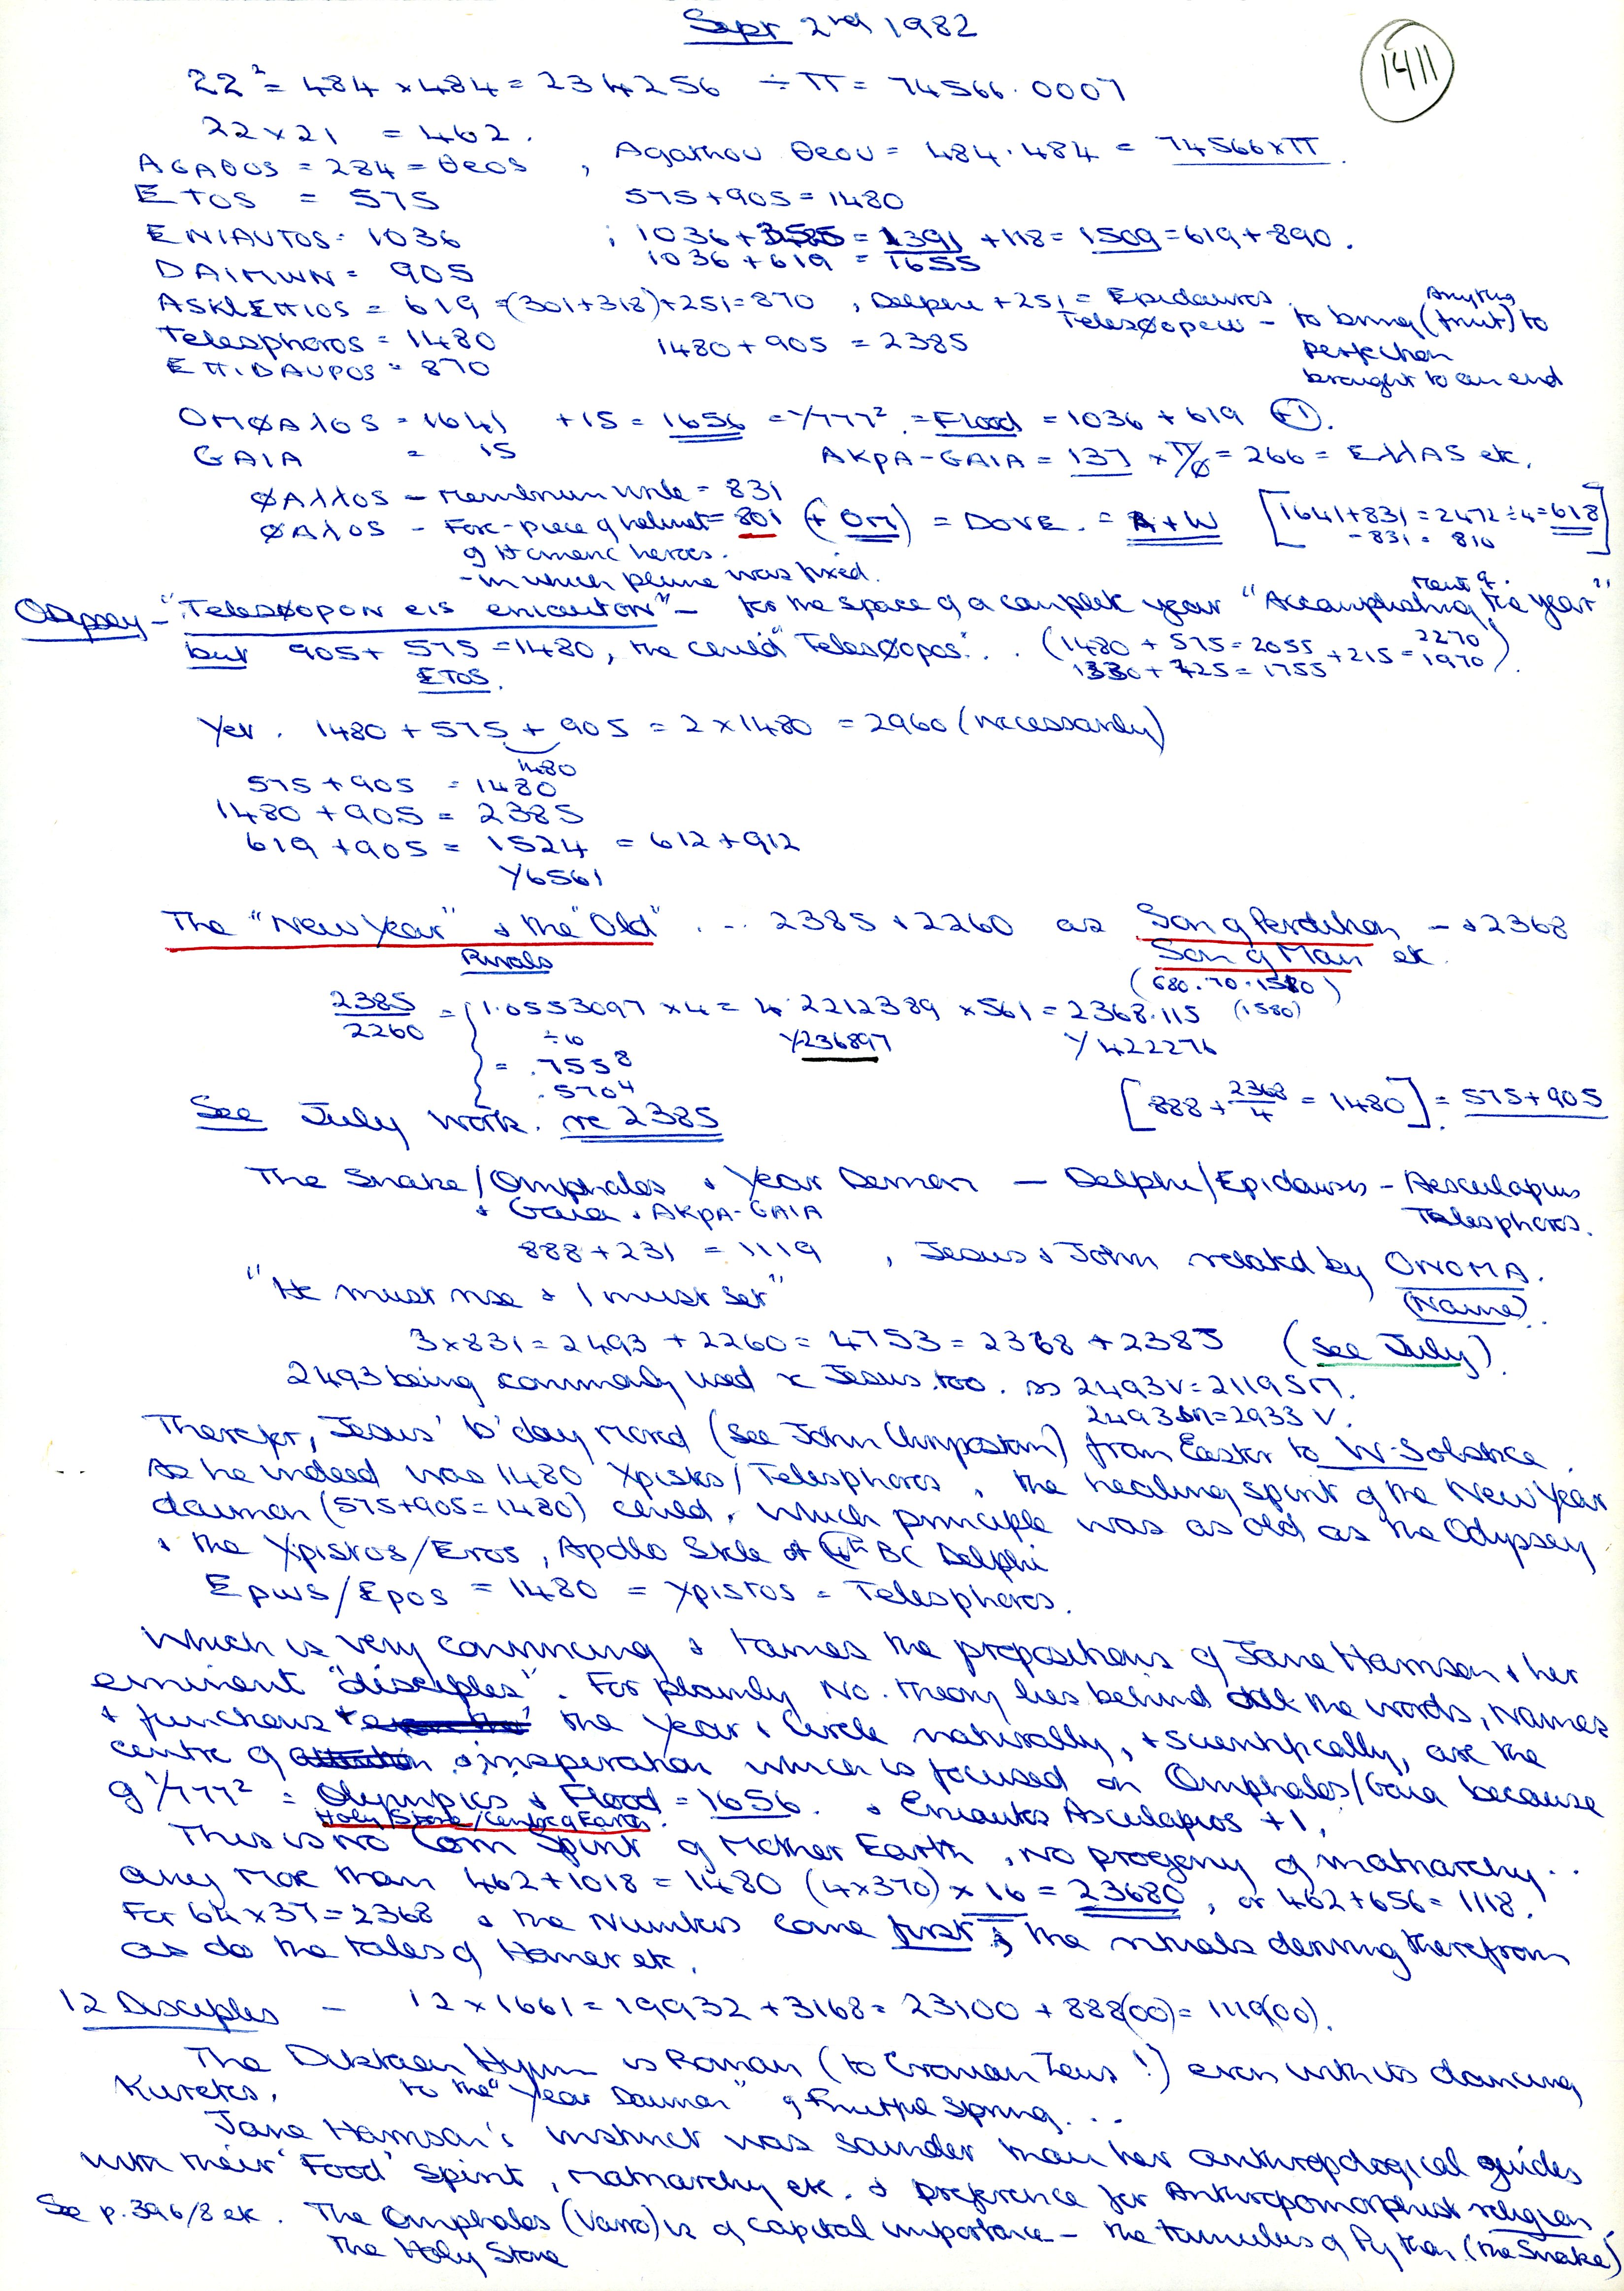 Sept 2nd 1982
1411
22² = 484 x 484 = 234256 ÷ π = 74566.0007
22 x 21 = 462.
AGAθOS = 284 = θeos , Agathou θeou = 484.484 = 74566 x π.
ETOS = 575 575+905 = 1480
ENIAUTOS = 1036 ; 1036 + = 1391 +118 = 1509 = 619 + 890.
1036 + 619 = 1655
DAIMWN = 905
ASKLEΠIOS = 619 = (301+318)+251 = 870 , Delphi +251 = Epidauros.
Telesøopew - to bring (fruit) to
Anything
perfection
brought to an end
Telesphoros = 1480 1480 + 905 = 2385
EΠIDAUPOS = 870
OMØAλOS = 1641 +15 = 1656 = Y777². = Flood = 1036 + 619 +1.
GAIA = 15 AKPA-GAIA = 137 x π/ø = 266 = EλλAS etc.
ØAλλOS - membrum virile = 831
ØAλOS - Fore-piece of helmet = 801 (+ OM) = DOVE. = A+W [1641+831 = 2472 ÷ 4 = 618]
- 831 = 810
of Homeric heroes.
- in which plume was fixed.
Odyssey - "Telesøopon eis eniauton" - for the space of a complete year "Accomplishment of the year"
but 905 + 575 = 1480, the "Telesøopos". . (1480 + 575 = 2055 + 215 = 2270
ETOS. 1330 + 425 = 1755 1970).
Yet. 1480 + 575 + 905 = 2 x 1480 = 2960 (necessarily)
1480
575 + 905 = 1480
1480 + 905 = 2385
619 + 905 = 1524 = 612 + 912
Y6561
The "New Year" & the "Old" . .. 2385 + 2260 as Son of Perdition - & 2368
Rivals Son of Man etc.
(680.70.1510)
2385/2260 = 1.0553097 x 4 = 4.2212389 x 561 = 2368.115 (1580)
Y236897 Y422276
= .7558
.5704
[888 + 2368/4 = 1480] = 575 + 905
See July work. re 2385
The Snake/Omphalos & Year Demon - Delphi/Epidauros - Aesculapius
& Gaia & AKPA-GAIA Telesphoros.
888 + 231 = 1119 , Jesus & John related by ONOMA.
(Name).
"He must rise & I must set"
3 x 831 = 2493 + 2260 = 4753 = 2368 + 2385 (See July).
2493 being commonly used x Jesus too. so 2493 V = 2119 SM.
2493 SM = 2933 V.
Therefor, Jesus' b'day moved (see John Chrysostom) from Easter to W-Solstice.
As he indeed was 1480 Xpistos/Telesphoros, the healing spirit of the New Year
daimon (575+905=1480) . Which principle was as old as the Odyssey
& the Xpistos/Eros, Apollo Side of BC Delphi
Epws/Epos = 1480 = Xpistos = Telesphoros.
Which is very convincing & tames the propositions of Jane Harrison & her
eminent "disciples". For plainly No. theory lies behind all the words, names
& functions & the Year & Circle naturally, & scientifically, are the
centre of & inspiration which is focused on Omphalos/Gaia because
of 1/777² = Olympics & Flood = 1656. & Eniautos Asculapios +1.
Holy/Stone/Centre of Earth.
This is no Corn Spirit of Mother Earth, no progeny of matriarchy..
any more than 462 + 1018 = 1480 (4x370) x 16 = 23680, or 462 + 656 = 1118.
For 64 x 37 = 2368 & the Numbers come first, the rituals deriving therefrom
as do the tales of Homer etc.
12 Disciples - 12 x 1661 = 19932 + 3168 = 23100 + 888(00) = 1119(00).
The Diktaean Hymn is Roman (to Cronian Zeus!) even with its dancing
Kuretes, to the "Year Daimon" of Fruitful Spring...
Jane Harrison's instinct was sounder than her anthropological guides
with their 'Food' Spirit, matriarchy etc. & preference for Anthropomorphist religion.
See p. 396/8 etc. The Omphalos (Varro) is of capital importance - the tumulus of Python. (the Snake)
The Holy Stone